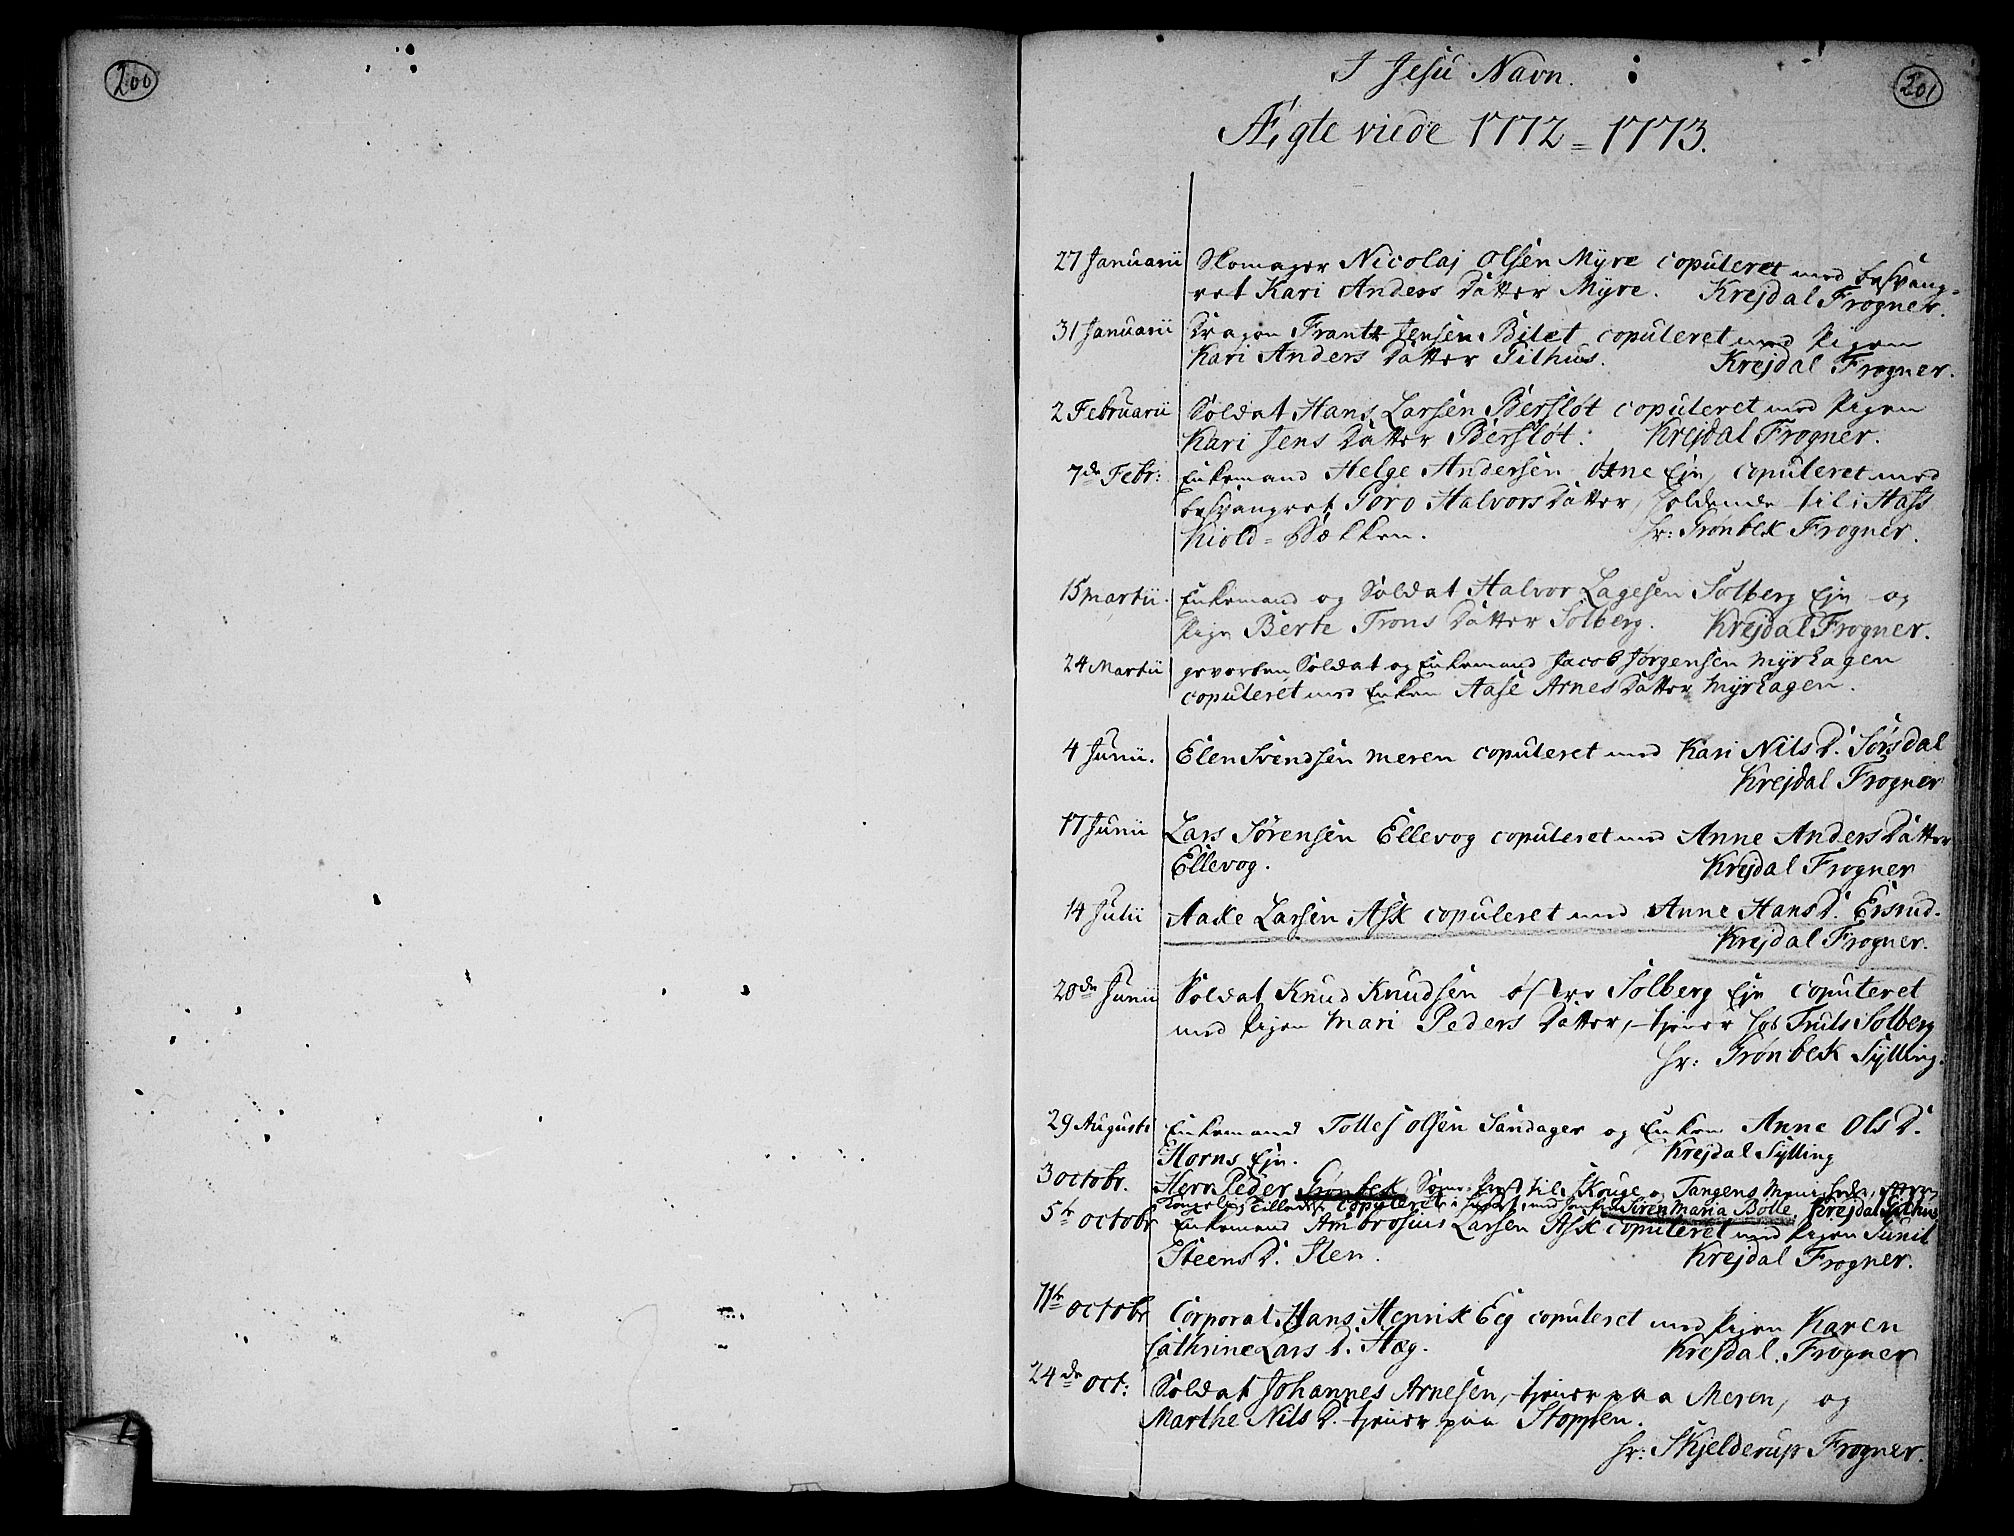 200
201
I Jesu Navn.
Ægte viede 1772 = 1773.
27 Januarii Skomager Nicolaj Olsen Myre copuleret med besvang-
ret Kari Anders Datter Myre. Krejdal Frogner.
31 Januarii Dragon Frantz Jensen Bilet copuleret med Pigen
Kari Anders Datter Gilhus. Krejdal Frogner.
2 Februarii Soldat Hans Larsen Bersløt copuleret med Pigen
Kari Jens Datter Bersløt. Krejdal Frogner.
7de Febr: Enkemand Helge Andersen Eje, copuleret med
besvangret Goro Halvors Datter, holdende til i Hass
kiold = Bækken. Hr: Grønbek Frogner.
15 Martii. Enkemand og Soldat Halvor Lagesen Solberg Eje og
Pige Berte Trons Datter Solberg. Krejdal Frogner.
24 Martii gevorben Soldat og Enkemand Jacob Jørgensen Myrhagen
copuleret med Enken Aase Arnes Datter Myrhagen.
4 Junii. Elen Svendsen Meren copuleret med Kari Nils D. Sørsdal
Krejdal Frogner
17 Junii Lars Sørensen Ellevog copuleret med Anne Anders Datter
Ellevog. Krejdal Frogner
14 Julii Aake Larsen Ask copuleret med Anne Hans D. Ersrud.
Krejdal Frogner.
20de Junii Soldat Knud Knudsen østre Solberg Eje copuleret
med Pigen Mari Peders Datter, tjener hos Truls Solberg
Hr: Grønbek Sylling.
29 Augusti Enkemand Tolles Olsen Sandager og Enken Anne Ols D.
Horns Eje. Krejdal Sylling
3 octobr. Herr Peder Grønbek, Sogne-Præst til Skouge og Tangens Menigheder, efter
Kongelig Tilladelse copuleret i huset med Jomfru Siren Maria Bolle. Krejdal Gilhus
5te octobr Enkemand Ambrosius Larsen Ask copuleret med Pigen Gunil
Steens D. Sten. Krejdal Frogner.
11te octobr Corporal Hans Henrik Eeg copuleret med Pigen Karen
Cathrine Lars D. Hæg. Krejdal. Frogner
24de oct: Soldat Johannes Arnesen, tjener paa Meren, og
Marthe Nils D. tjener paa Stoppen.
Hr: Skjelderup Frogner.